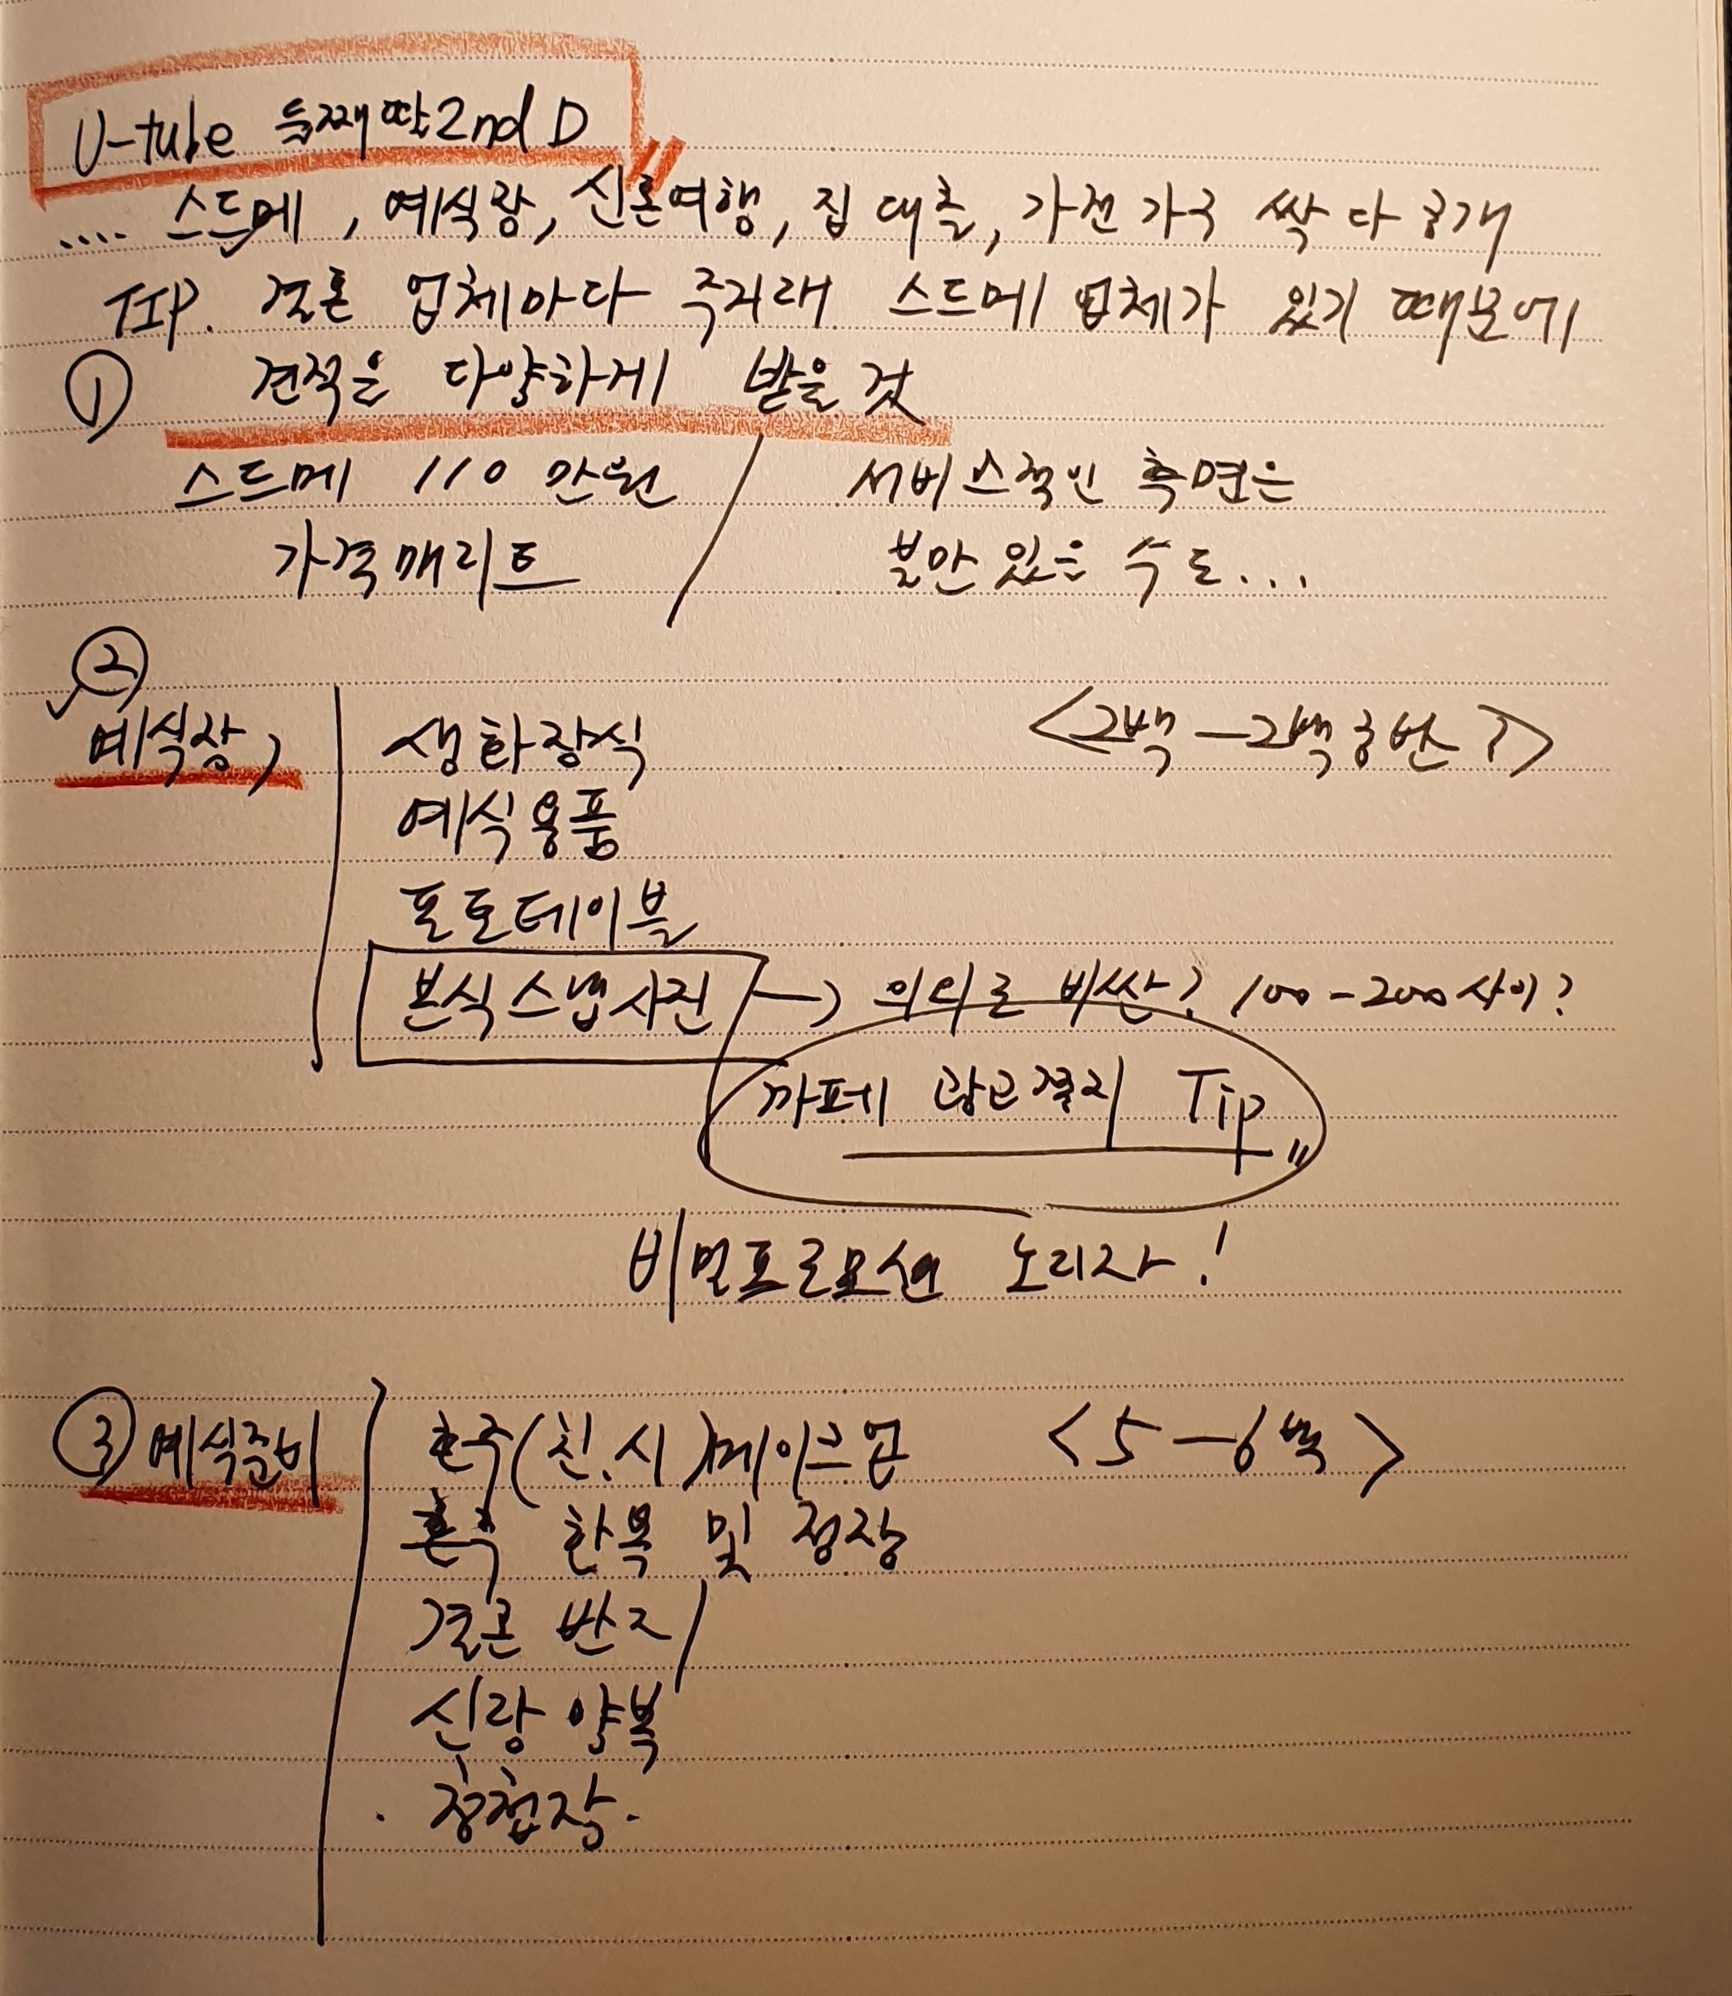 U-tube 둘째딸 2nd D
.... 스드메, 예식장, 신혼여행, 집 대출, 가전 가구 싹 다 공개
TIP. 결혼 업체마다 주거래 스드메 업체가 있기 때문에
① 견적은 다양하게 받을 것
스드메 110 만원 / 서비스적인 측면은
가격매리트 불만 있을 수도...
②
예식장, 생화장식 <2백-2백중반?>
예식용품
포토테이블
본식스냅사진 → 의외로 비싼? 100-200사이?
까페 광고결제 Tip"
비밀프로모션 노리자!
③ 예식준비 혼주(친.시)메이크업 <5-6백>
혼주 한복 및 정장
결혼 반지
신랑 양복
. 청첩장.